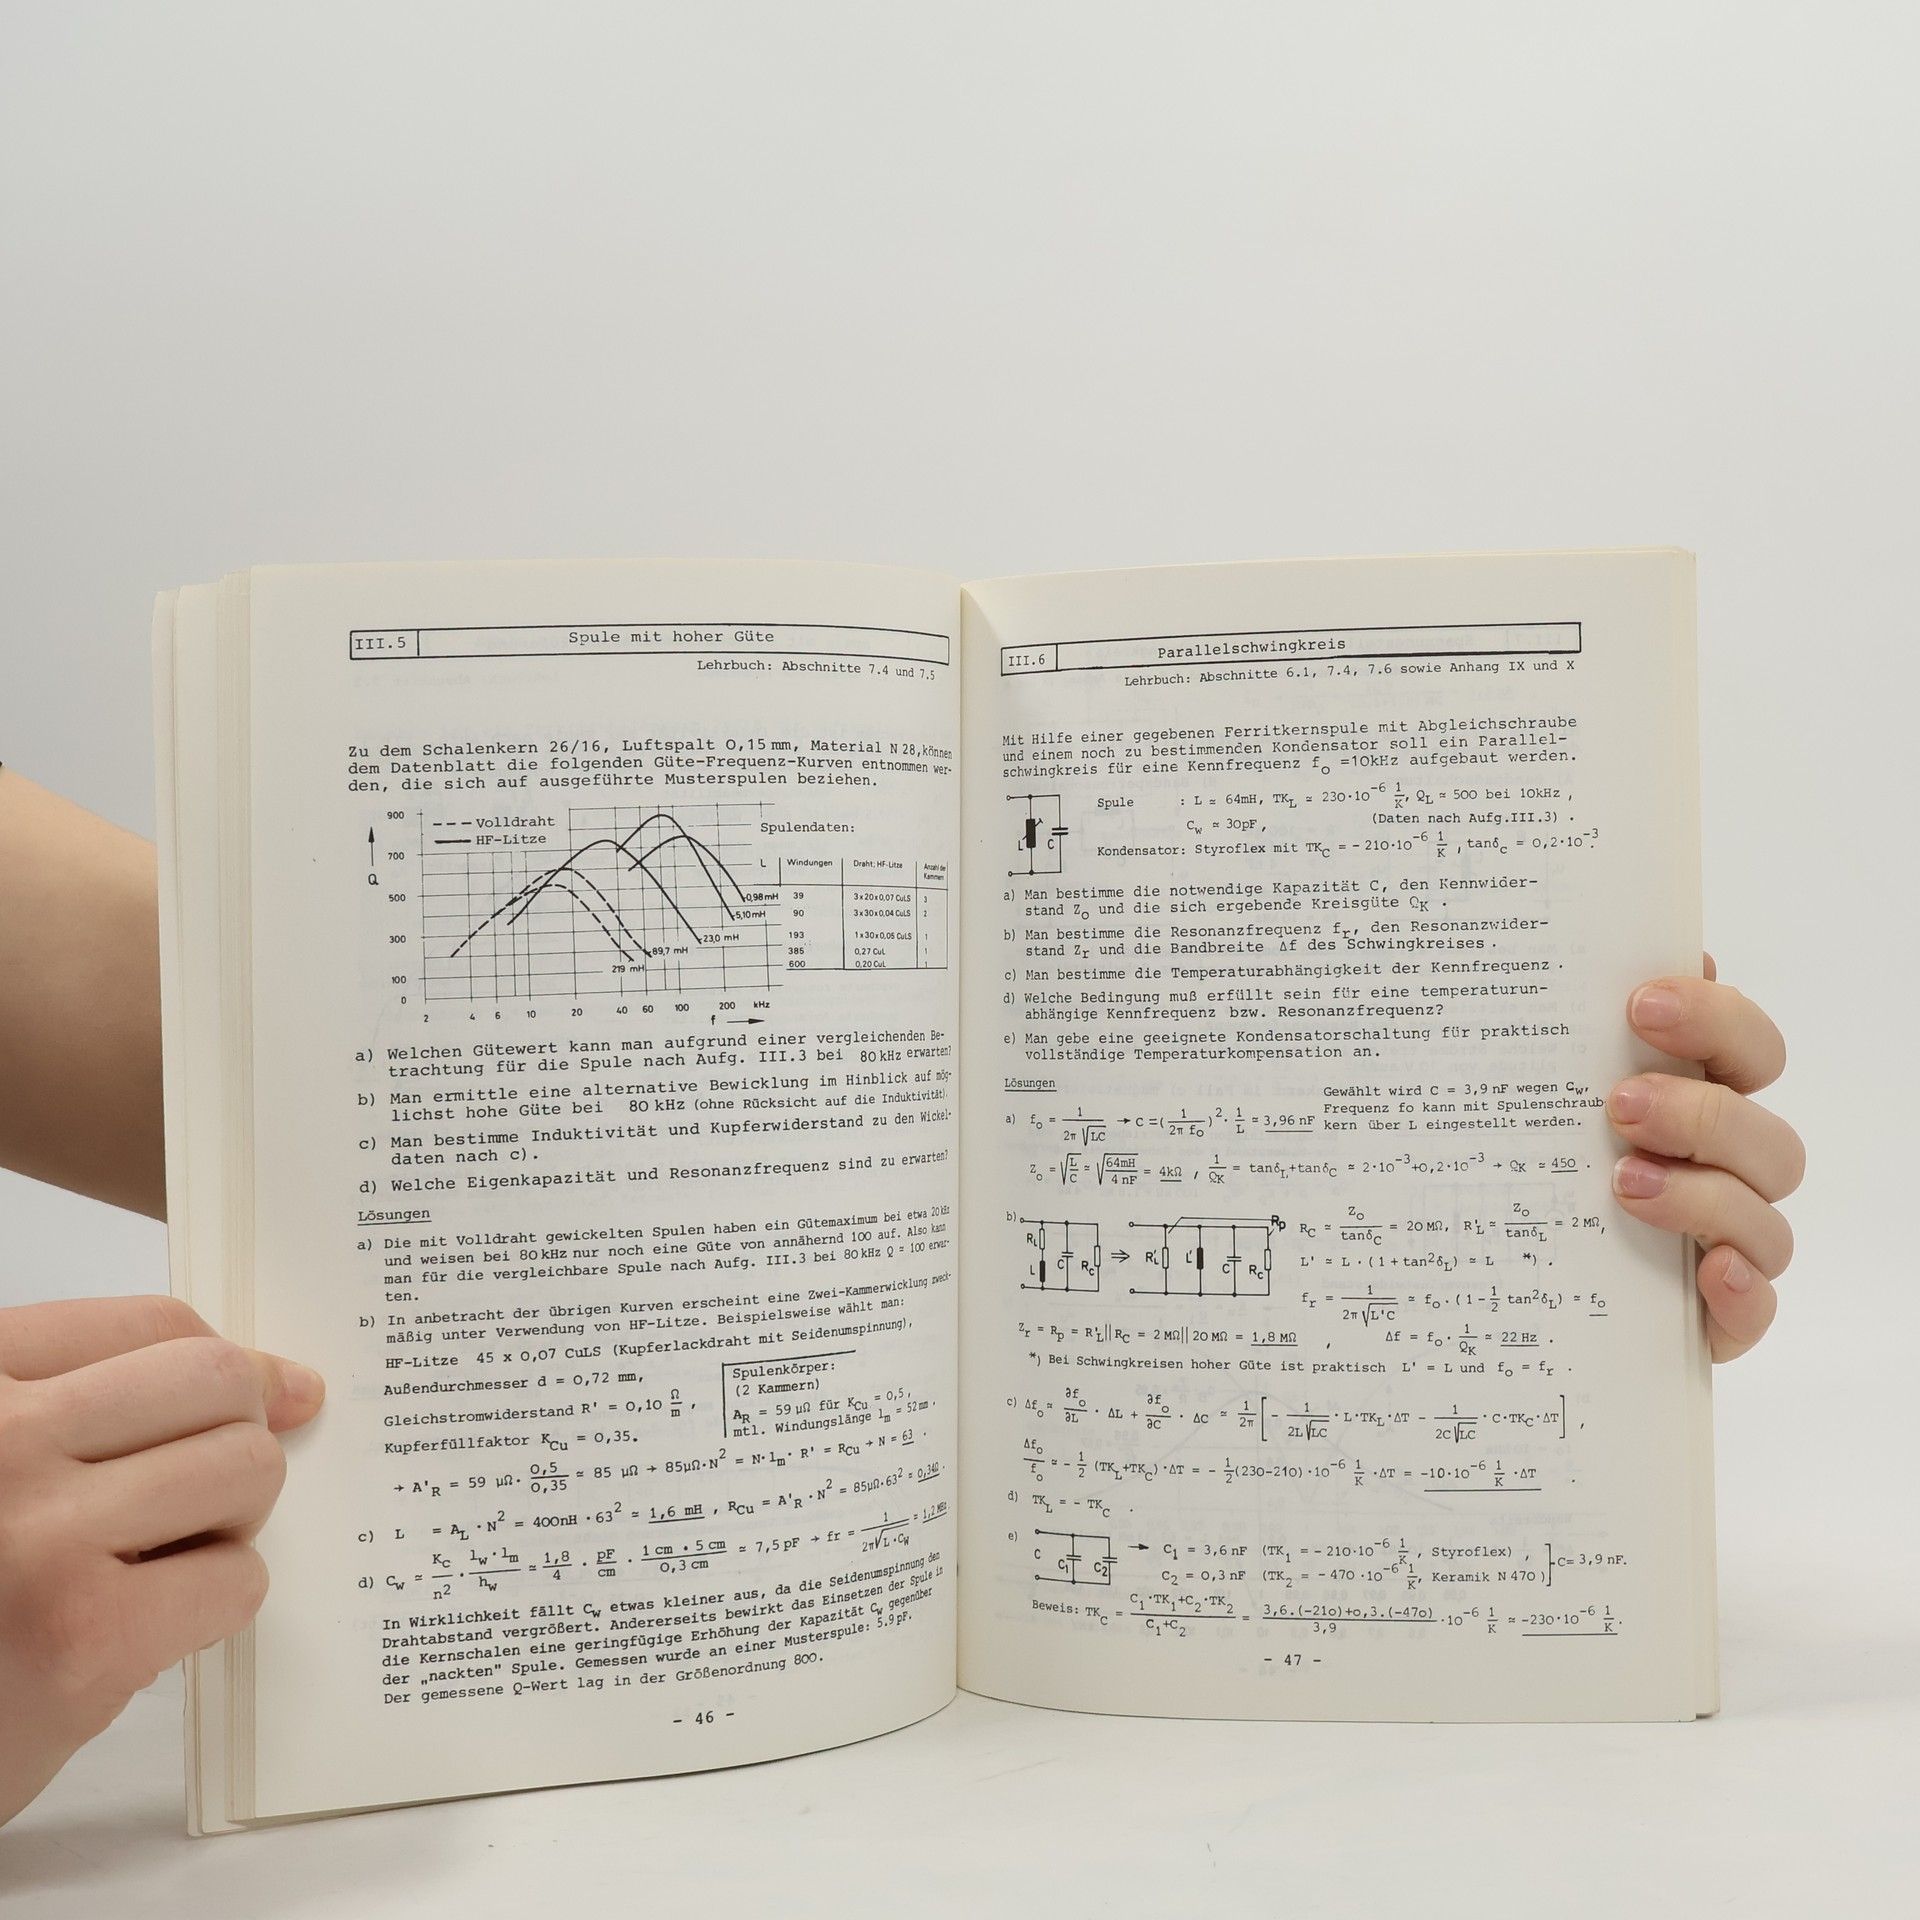 III.5 Spule mit hoher Güte
Lehrbuch: Abschnitte 7.4 und 7.5
Zu dem Schalenkern 26/16, Luftspalt 0,15 mm, Material N 28, können
dem Datenblatt die folgenden Güte-Frequenz-Kurven entnommen wer-
den, die sich auf ausgeführte Musterspulen beziehen.
900
700
500
300
100
0
Q
--- Volldraht
— HF-Litze
2 4 6 10 20 40 60 100 200 kHz
f
0,98 mH
5,10 mH
23,0 mH
89,7 mH
219 mH
Spulendaten:
L Windungen Draht; HF-Litze Anzahl der Kammern
39 3x20x0,07 CuLS 3
90 3x30x0,04 CuLS 2
193 1x30x0,05 CuLS 1
385 0,27 CuL 1
600 0,20 CuL 1
a) Welchen Gütewert kann man aufgrund einer vergleichenden Be-
trachtung für die Spule nach Aufg. III.3 bei 80 kHz erwarten?
b) Man ermittle eine alternative Bewicklung im Hinblick auf mög-
lichst hohe Güte bei 80 kHz (ohne Rücksicht auf die Induktivität).
c) Man bestimme Induktivität und Kupferwiderstand zu den Wickel-
daten nach c).
d) Welche Eigenkapazität und Resonanzfrequenz sind zu erwarten?
Lösungen
a) Die mit Volldraht gewickelten Spulen haben ein Gütemaximum bei etwa 20 kHz
und weisen bei 80 kHz nur noch eine Güte von annähernd 100 auf. Also kann
man für die vergleichbare Spule nach Aufg. III.3 bei 80 kHz Q ≈ 100 erwar-
ten.
b) In anbetracht der übrigen Kurven erscheint eine Zwei-Kammerwicklung zweck-
mäßig unter Verwendung von HF-Litze. Beispielsweise wählt man:
HF-Litze 45 x 0,07 CuLS (Kupferlackdraht mit Seidenumspinnung),
Außendurchmesser d = 0,72 mm,
Gleichstromwiderstand R' = 0,10 Ω/m ,
Kupferfüllfaktor K_Cu = 0,35.
Spulenkörper:
(2 Kammern)
A_R = 59 µΩ für K_Cu = 0,5,
mtl. Windungslänge l_m = 52 mm.
→ A'_R = 59 µΩ · 0,5/0,35 ≈ 85 µΩ → 85µΩ·N² = N·l_m· R' = R_Cu → N = 63 .
c) L = A_L · N² = 400nH · 63² ≈ 1,6 mH , R_Cu = A'_R · N² = 85µΩ·63² = 0,34Ω .
d) C_w ≈ K_C/n² · l_w·l_m/h_w ≈ 1,8/4 · pF/cm · 1 cm · 5 cm/0,3 cm ≈ 7,5 pF → fr = 1/2π√L·C_W ≈ 1,2 MHz.
In Wirklichkeit fällt C_w etwas kleiner aus, da die Seidenumspinnung den
Drahtabstand vergrößert. Andererseits bewirkt das Einsetzen der Spule in
die Kernschalen eine geringfügige Erhöhung der Kapazität C_w gegenüber
der „nackten" Spule. Gemessen wurde an einer Musterspule: 5,9 pF.
Der gemessene Q-Wert lag in der Größenordnung 800.
- 46 -
III.6 Parallelschwingkreis
Lehrbuch: Abschnitte 6.1, 7.4, 7.6 sowie Anhang IX und X
Mit Hilfe einer gegebenen Ferritkernspule mit Abgleichschraube
und einem noch zu bestimmenden Kondensator soll ein Parallel-
schwingkreis für eine Kennfrequenz f_o =10kHz aufgebaut werden.
L C
Spule : L ≈ 64mH, TK_L ≈ 230·10⁻⁶ 1/K, Q_L ≈ 500 bei 10kHz ,
C_w ≈ 30pF , (Daten nach Aufg.III.3) .
Kondensator: Styroflex mit TK_C = - 210·10⁻⁶ 1/K , tanδ_c = 0,2·10⁻³ .
a) Man bestimme die notwendige Kapazität C, den Kennwider-
stand Z_o und die sich ergebende Kreisgüte Q_K .
b) Man bestimme die Resonanzfrequenz f_r, den Resonanzwider-
stand Z_r und die Bandbreite Δf des Schwingkreises .
c) Man bestimme die Temperaturabhängigkeit der Kennfrequenz .
d) Welche Bedingung muß erfüllt sein für eine temperaturun-
abhängige Kennfrequenz bzw. Resonanzfrequenz?
e) Man gebe eine geeignete Kondensatorschaltung für praktisch
vollständige Temperaturkompensation an.
Lösungen
Gewählt wird C = 3,9 nF wegen C_w,
Frequenz fo kann mit Spulenschraub-
kern über L eingestellt werden.
a) f_o = 1/2π √LC → C =(1/2π f_o)² · 1/L ≈ 3,96 nF
Z_o = √L/C ≈ √64mH/4 nF = 4kΩ , 1/Q_K = tanδ_L+tanδ_C ≈ 2·10⁻³+0,2·10⁻³ → Q_K ≈ 450 .
b) R_L L C R_C ⇒ R'_L L' C R_C R_p
R_C ≈ Z_o/tanδ_C = 20 MΩ, R'_L ≈ Z_o/tanδ_L = 2 MΩ,
L' ≈ L · (1 + tan²δ_L) ≈ L *) .
f_r = 1/2π √L'C ≈ f_o · (1 - 1/2 tan²δ_L) ≈ f_o
Z_r = R_p = R'_L || R_C = 2 MΩ || 20 MΩ = 1,8 MΩ , Δf = f_o · 1/Q_K ≈ 22 Hz .
*) Bei Schwingkreisen hoher Güte ist praktisch L' = L und f_o = f_r .
c) Δf_o ≈ ∂f_o/∂L · ΔL + ∂f_o/∂C · ΔC ≈ 1/2π [ - 1/2L√LC · L·TK_L·ΔT - 1/2C√LC · C·TK_C·ΔT ] ,
Δf_o/f_o ≈ - 1/2 (TK_L+TK_C)·ΔT = - 1/2(230-210)·10⁻⁶ 1/K ·ΔT = -10·10⁻⁶ 1/K ·ΔT .
d) TK_L = - TK_C .
e) C C₁ C₂ → C₁ = 3,6 nF (TK₁ = - 210·10⁻⁶ 1/K , Styroflex) ,
C₂ = 0,3 nF (TK₂ = - 470 ·10⁻⁶ 1/K, Keramik N 470 ) ] C= 3,9 nF.
Beweis: TK_C = C₁·TK₁+C₂·TK₂/C₁+C₂ = 3,6.(-210)+0,3.(-470)/3,9 ·10⁻⁶ 1/K ≈ -230·10⁻⁶ 1/K .
- 47 -